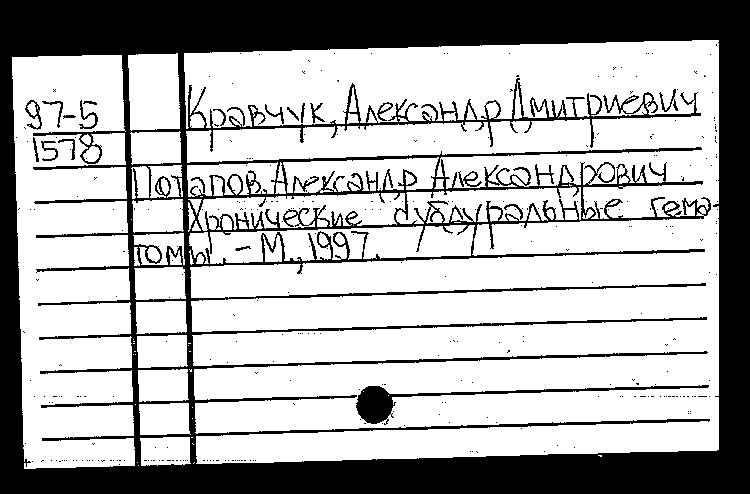 97-5 Кравчук, Александр Дмитриевич
1578
Потапов, Александр Александрович.
Хронические субдуральные гема-
томы. - М., 1997.